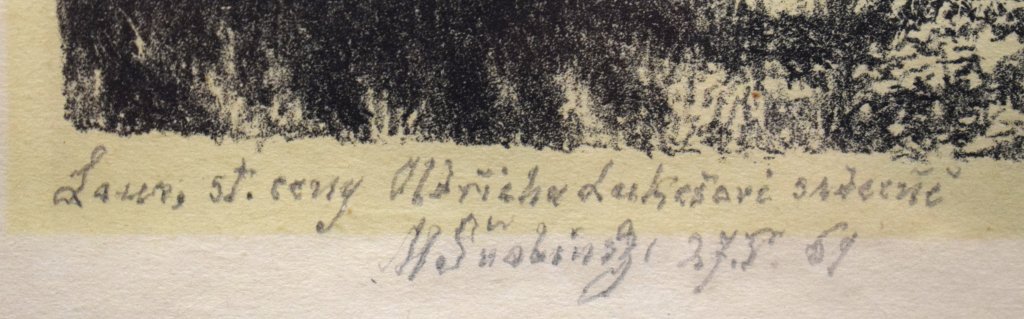 Laur. st. ceny Oldřichu Lukešovi srdečně
M Švabinský 27.V. 61